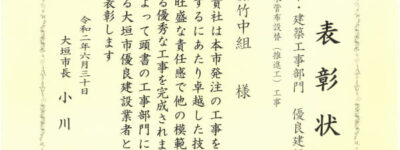 表彰状
・建築工事部門　優良建
管布設替（推進工）工事
竹中組　様
貴社は本市発注の工事を
するにあたり卓越した技
旺盛な責任感で他の模範
る優秀な工事を完成されま
よって頭書の工事部門に
る大垣市優良建設業者と
表彰します
令和二年六月三十日
大垣市長　小川